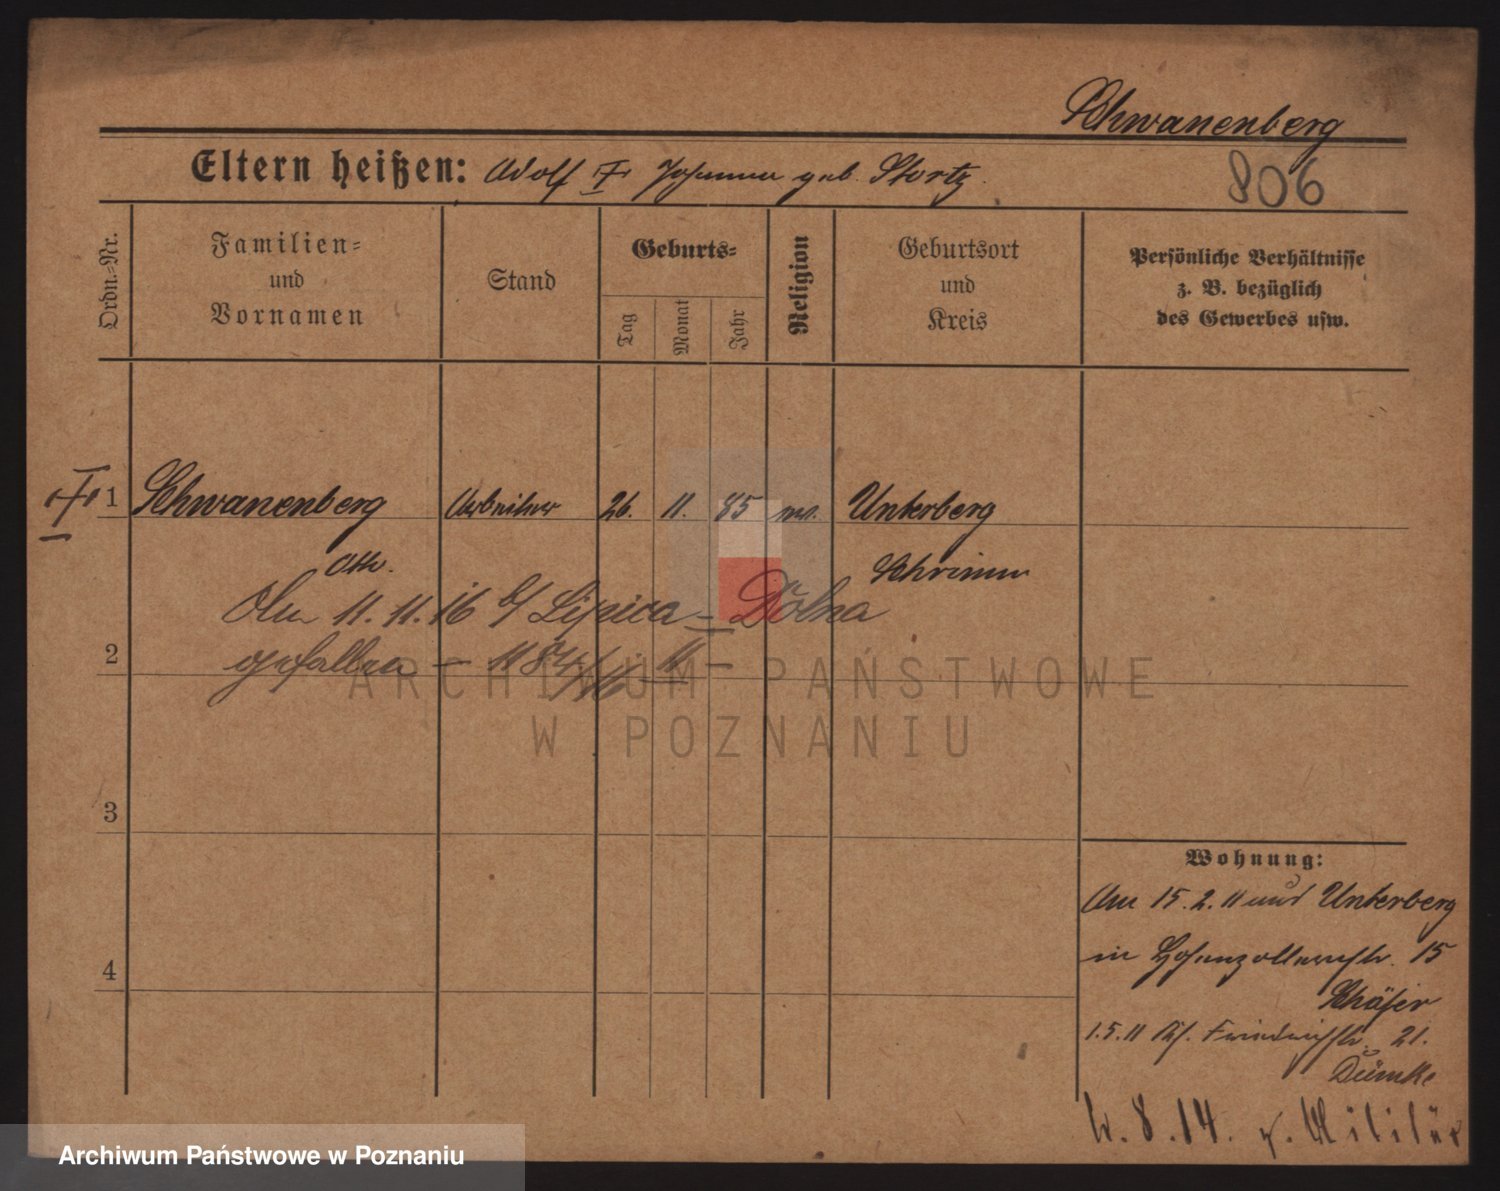 Schwanenberg
Eltern heißen: Adolf u Johanna geb. Stortz.
806
Ordn.-Nr.
Familien-
und
Vornamen
Stand
Geburts-
Tag
Monat
Jahr
Religion
Geburtsort
und
Kreis
Persönliche Verhältnisse
z. B. bezüglich
des Gewerbes usw.
1 Schwanenberg Arbeiter 26. 11. 85 ev. Unterberg
Otto. Schrimm
Am 11. 11. 16 b/ Lipica - Dolna
2 gefallen
3
4
Wohnung:
Am 15. 2. 11 aus Unterberg
in Hohenzollernstr. 15
Schäfer
1. 5. 11 Friedrichstr. 21.
Dümke
8. 14. z. Militär
ARCHIWUM PAŃSTWOWE
W POZNANIU
Archiwum Państwowe w Poznaniu